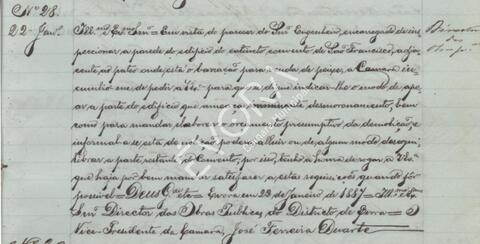 Nº 28.
22 Janº
Illmº Exmº Senr. Em vista do parecer do Snr. Engenheiro, encarregado de ins-
peccionar a parede do edificio do extincto convento de São Francisco, adja-
cente ao pateo onde está o barracão para a venda de peixe, a Camara in-
cumbio-me de pedir a V. Exª para que se digne indicar-lhe o modo de ape-
ar a parte do edificio que ameaça imminente desmoronamento, bem
como para mandar elaborar o orçamento presumptivo da demolição, e
informal-a se esta demolição poderá alluir ou de algum modo desequi-
librar a parte restante do Convento, por isso, tenho a honra de rogar a V. Exª
que haja por bem mandar satisfazer a esta requisição quando fôr
possivel = Deus Gde etc. Evora em 23 de janeiro de 1887 = Illmº Exmº
Senr. Director das Obras Publicas do Districto de Evora = O
Vice Presidente da Camara, José Ferreira Duarte
Director das